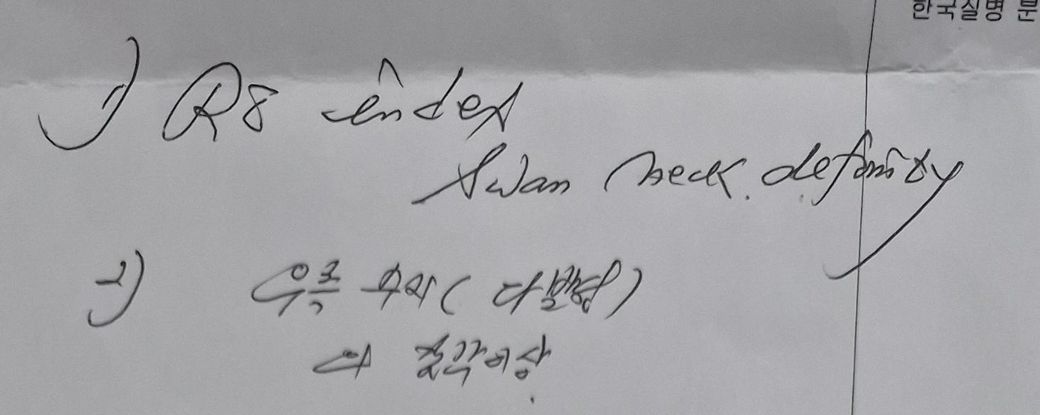 한국질병 분
1) Rt index
swan neck deformity
2) 우측 수지 (다발성)
의 감각이상